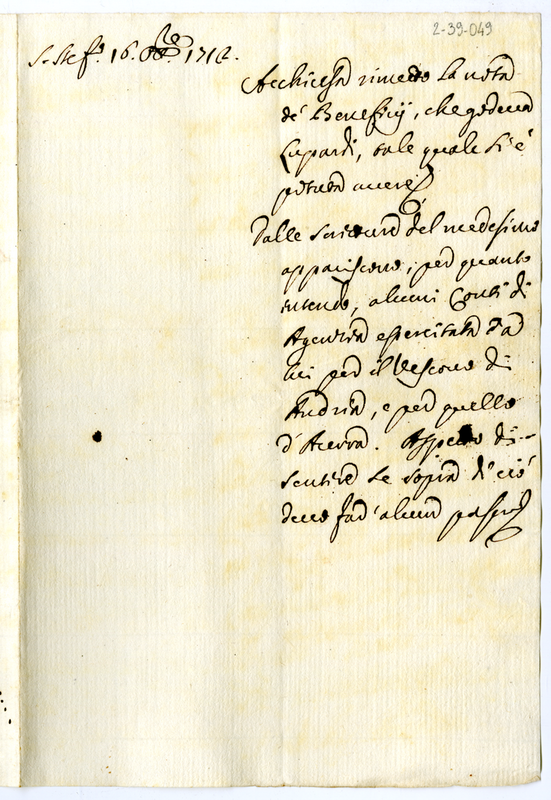 2-39-049
S. Stef.º 16. 8bre 1712.
Acchiusa rimetto la nota
de' Beneficij, che godeua
Lupardi, tale quale si è
potuta auere.
Dalle Scritture del medesimo
appariscono, per quanto
intendo, alcuni Conti di
Agenzia esercitata da
lui per il Vescouo di
Andria, e per quello
d'Acerra. Aspetto di
sentire se sopra di ciò
deuo far' alcun passo